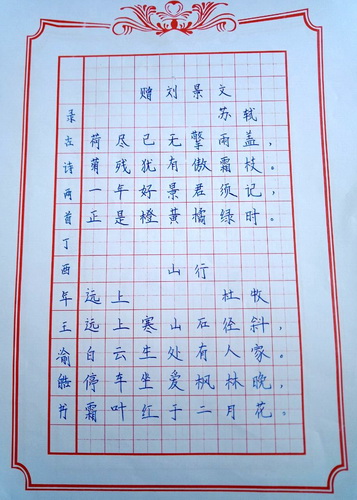 赠刘景文
苏轼
荷尽已无擎雨盖，
菊残犹有傲霜枝。
一年好景君须记，
正是橙黄橘绿时。
山行
远上 杜牧
远上寒山石径斜，
白云生处有人家。
停车坐爱枫林晚，
霜叶红于二月花。
录古诗两首丁酉年王渝皓哲